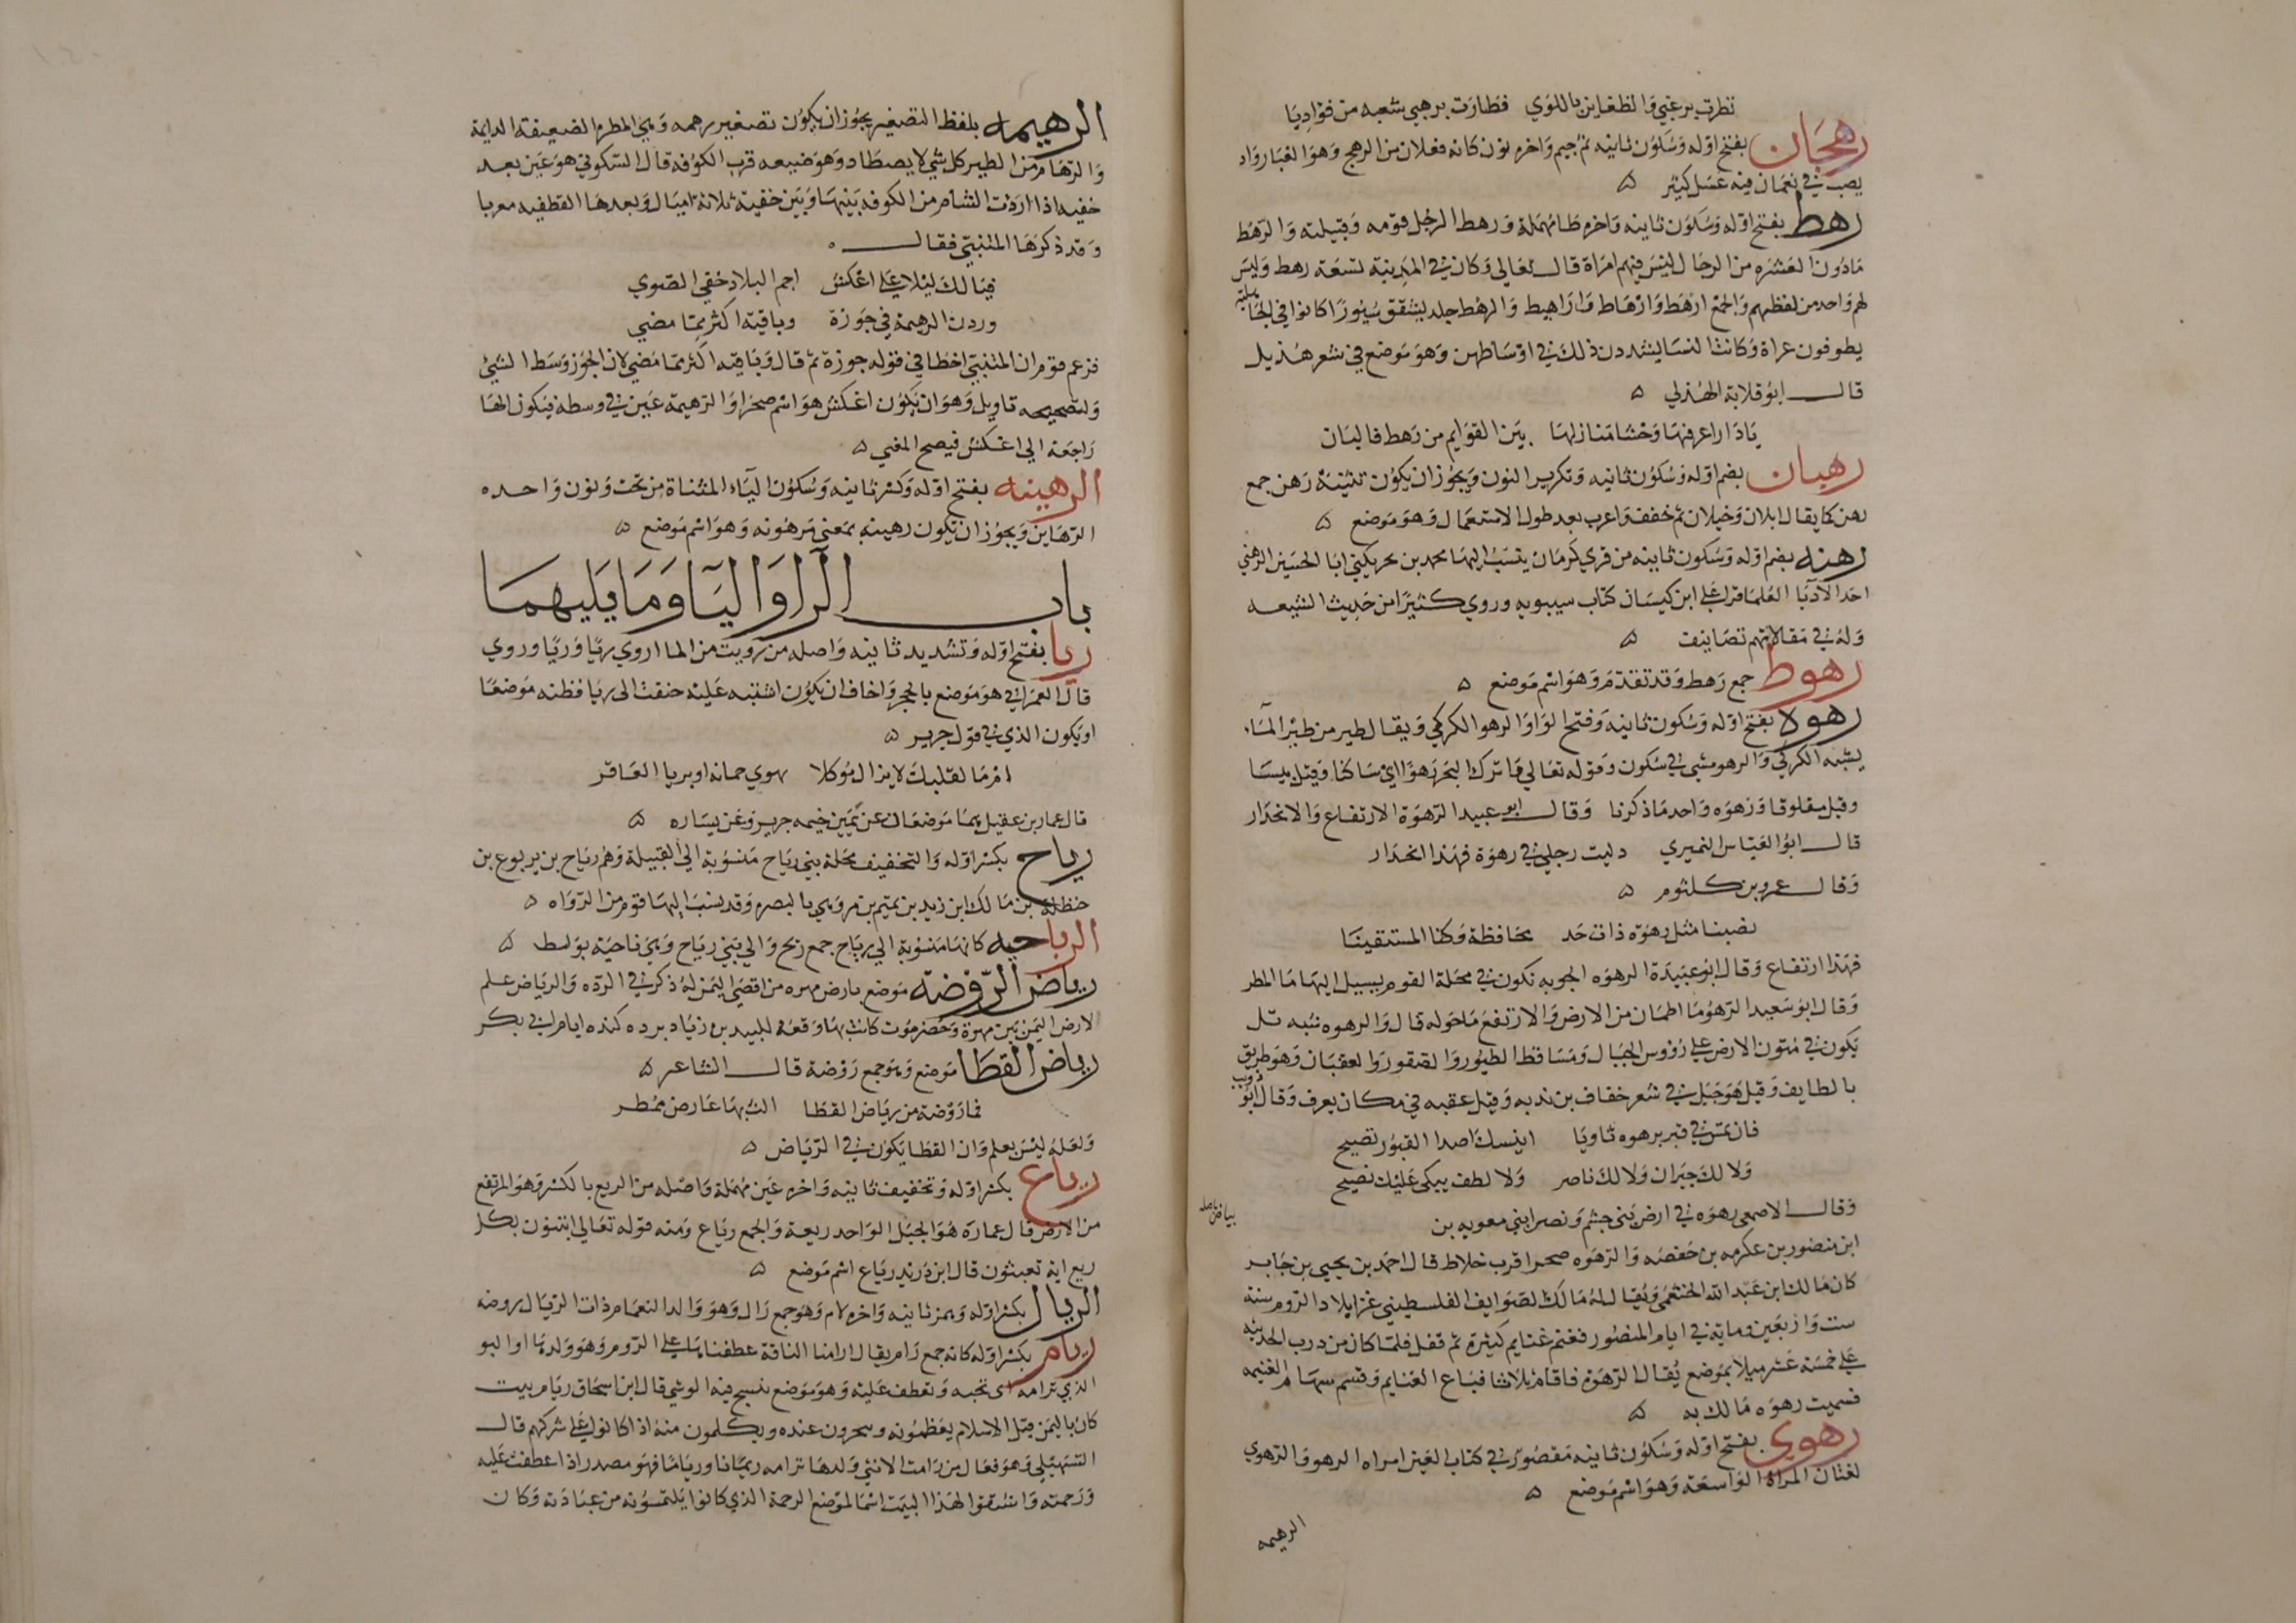 نظرت برغبي والظعاين باللوي فطارت برهبي شعبه من فواديا
رهجان بفتح اوله وسكون ثانيه ثم جيم واخره نون كانه فعلان من الرهج وهو الغبار واد
يصب في نعمان فيه عسل كثير
رهط بفتح اوله وسكون ثانيه واخره طا مهملة ورهط الرجل قومه وقبيلته والرهط
مادون العشره من الرجال ليس فيهم امراة قال تعالي وكان في المدينة تسعة رهط وليس
لهم واحد من لفظهم والجمع ارهط وارهاط واراهيط والرهط جلد يشقق سيورا كانوا في الجاهلية
يطوفون عراة وكانت النسا يشددن ذلك في اوساطهن وهو موضع في شعر هذيل
قال ابو قلابة الهذلي
يا دار اعرفها وحشا منازلها بين القوايم من رهط فالبان
رهنان بضم اوله وسكون ثانيه وتكرير النون ويجوز ان يكون تثنية رهن جمع
رهن كما يقال ابلان وخيلان ثم خفف واعرب بعد طول الاستعمال وهو موضع
رهنه بضم اوله وسكون ثانيه من قري كرمان ينسب اليها محمد بن بحر يكني ابا الحسين الرهني
احد الادبا العلما قرا علي ابن كيسان كتاب سيبويه وروي كثيرا من حديث الشيعه
وله في مقالاتهم تصانيف
رهوط جمع رهط وقد تقدم وهو اسم موضع
رهوة بفتح اوله وسكون ثانيه وفتح الواو الرهو الكركي ويقال طير من طير الماء
يشبه الكركي والرهو مشي في سكون وقوله تعالي واترك البحر رهوا اي ساكنا وقيل يبسا
وقيل مفلوقا ورهوه واحد ما ذكرنا وقال ابو عبيد الرهوة الارتفاع والانحدار
قال ابو العباس النميري دليت رجلي في رهوة فهذا انحدار
وقال عمرو بن كلثوم
نصبنا مثل رهوة ذات حد محافظة وكنا المستقينا
فهذا ارتفاع وقال ابو عبيدة الرهوه الجوبه تكون في محلة القوم يسيل اليها ما المطر
وقال ابو سعيد الرهو ما اطمان من الارض والارتفع ما حوله قال والرهوه شبه تل
يكون في متون الارض علي رؤوس الجبال ومساقط الطيور والصقور والعقبان وهو طريق
بالطايف وقيل هو جبل في شعر خفاف بن ندبه وقيل عقبه في مكان يعرف وقال ابو ذويب
فان تمس في قبر برهوه ثاويا انيسك اصدا القبور تصيح
ولا لك جيران ولا لك ناصر ولا لطف يبكي عليك نصيح
وقال الاصمعي رهوه في ارض بني جشم ونصر ابني معويه بن
بياض باصله
ابن منصور بن عكرمه بن خفصه والرهوه صحرا قرب خلاط قال احمد بن يحيي بن جابر
كان مالك ابن عبد الله الخثعمي ويقال له مالك الصوايف الفلسطيني غزا بلاد الروم سنة
ست واربعين وماية في ايام المنصور فغنم غنايم كثيرة ثم قفل فلما كان من درب الحدث
علي خمسة عشر ميلا بموضع يقال الرهوة فاقام ثلاثا فباع الغنايم وقسم سهام الغنيمه
فسميت رهوه مالك به
رهوي بفتح اوله وسكون ثانيه مقصور في كتاب العين امراه الرهو والرهوي
لغتان المراة الواسعة وهو اسم موضع
الرهيمه
الرهيمه بلفظ التصغير يجوز ان يكون تصغير رهمه وهي المطره الضعيفة الدايمة
والرهام من الطير كل شي لا يصطاد وهو ضيعه قرب الكوفه قال السكوني هو عين بعد
خفيه اذا اردت الشام من الكوفه بينها وبين خفية ثلاثة اميال وبعدها القطفيه مغربا
وقد ذكرها المتنبي فقال
فيا لك ليلا علي اعكش احم البلاد خفي الصوي
وردن الرهيمة في جوزة وباقيه اكثر مما مضي
فزعم قوم ان المتنبي اخطا في قوله جوزة ثم قال وباقيه اكثر مما مضي لان الجوز وسط الشي
ولتصحيحه تاويل وهو ان يكون اعكش هو اسم صحرا والرهيمة عين في وسطه فيكون الها
راجعة الي اعكش فيصح المعني
الرهينه بفتح اوله وكسر ثانيه وسكون الياء المثناة من تحت ونون واحده
الرهاين ويجوز ان تكون رهينه بمعني مرهونه وهو اسم موضع
باب الرا واليا وما يليهما
ريا بفتح اوله وتشديد ثانيه واصله من رويت من الما اروي ريا وريا وروي
قال العمراني هو موضع بالحجر واخاف ان يكون اشتبه عليه حنفت الى ريا فظنه موضعا
او يكون الذي في قول جرير
امرما لقلبك لا يزال موكلا بهوي جمانه او بريا العاقر
قال عمار بن عقيل هما موضعان عن يمين خيمه جرير وعن يساره
رياح بكسر اوله والتخفيف محلة بني رياح منسوبة الي القبيلة وهم رياح بن يربوع بن
حنظلة بن مالك ابن زيد بن تميم بن مر وهي بالبصره وقد ينسب اليها قوم من الرواه
الرياحيه كانها منسوبة الي رياح جمع ريح والي بني رياح وهي ناحية بواسط
رياض الروضة موضع بارض مهره من اقصي اليمن له ذكر في الرده والرياض علم
لارض اليمن بين مهرة وحضرموت كانت بها وقعة للبيد بن زياد برده كنده ايام ابي بكر
رياض القطا موضع وهو جمع روضة قال الشاعر
فما روضة من رياض القطا الث بها عارض ممطر
ولعله ليس بعلم وان القطا يكون في الرياض
رياع بكسر اوله وتخفيف ثانيه واخره عين مهملة واصله من الريع بالكسر وهو المرتفع
من الارض قال عماره هو الجبل الواحد ريعة والجمع رياع ومنه قوله تعالي اتبنون بكل
ريع اية تعبثون قال ابن دريد رياع اسم موضع
الريال بكسر اوله وهمز ثانيه واخره لام وهو جمع رال وهو ولد النعام ذات الريال روضه
ريام بكسر اوله كانه جمع رام يقال ارامنا الناقة عطفناها علي الروم وهو ولدها او البو
الذي ترامه اي تحبه وتعطف عليه وهو موضع ينسج فيه الوشي قال ابن اسحاق ريام بيت
كان باليمن قبل الاسلام يعظمونه وينحرون عنده ويكلمون منه اذ كانوا علي شركهم قال
السهيلي وهو فعال من رامت الانثي ولدها ترامه ريمانا وريا ما فهو مصدر اذا عطفت عليه
ورحمته واشتقوا لهذا البيت اسما لموضع الرحمة الذي كانوا يلتمسونه من عبادته وكان